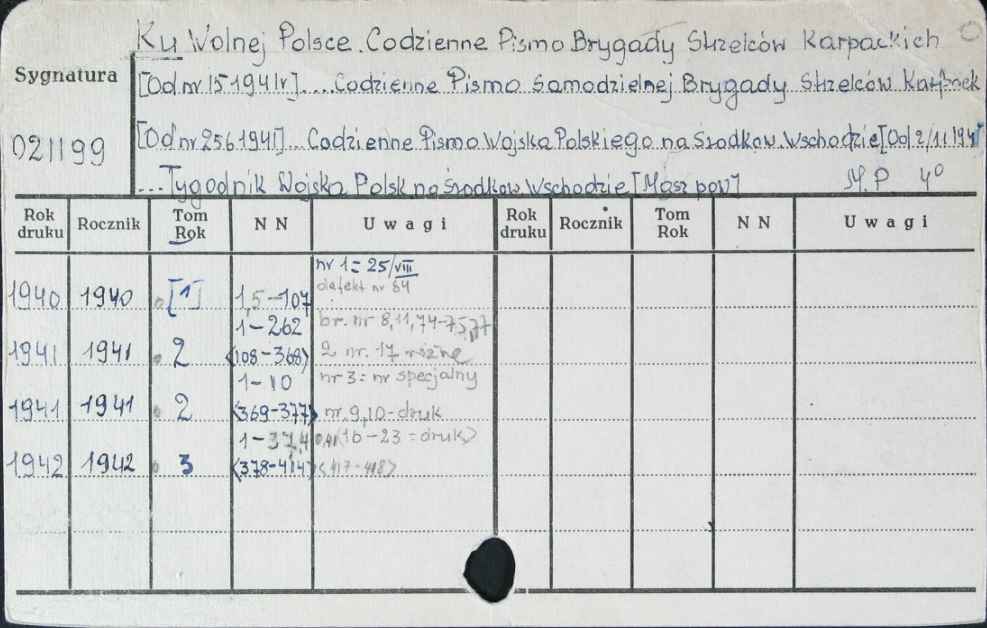 Ku Wolnej Polsce. Codzienne Pismo Brygady Strzelców Karpackich
Sygnatura
[Od nr 15 1941r].... Codzienne Pismo Samodzielnej Brygady Strzelców
021199
[Od nr 256 1941]... Codzienne Pismo Wojska Polskiego na Środkow. Wschodzie [Od 2/11 1941
...Tygodnik Wojska Polsk na Środkow. Wschodzie [Masz pow] M.P 4°
Rok druku Rocznik Tom Rok N N Uwagi Rok druku Rocznik Tom Rok N N Uwagi
nr 1 = 25/VIII
defekt nr 84
1940 1940 [1] 1,5-107
1-262 br. nr 8,11,74-75,77
1941 1941 2 <108-368> 2 nr. 17 różne
1-10 nr 3 = nr specjalny
1941 1941 2 <369-377> nr. 9,10-druk
1-37, (16-23 = druk)
1942 1942 3 <378-414> <417-418>